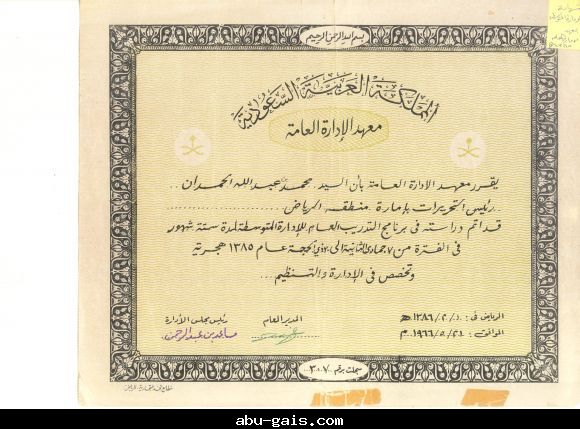 بسم الله الرحمن الرحيم
المملكة العربية السعودية
معهد الإدارة العامة
يقرر معهد الإدارة العامة بأن السيد. محمد بن عبد الله الحمدان ..
..رئيس التحريرات بإمارة. منطقة الرياض..........
قد أتم دراسته في برنامج التدريب العام للإدارة المتوسطة لمدة ستة شهور
في الفترة من ٧ جمادى الثانية إلى ذي الحجة عام ١٣٨٥ هجرية
وتخصص في الإدارة والتنظيم...
الرياض في: ١٣٨٦/٢/١٠ هـ
الموافق: ١٩٦٦/٥/٣٠ م
المدير العام
رئيس مجلس الإدارة
مساعد بن عبد الرحمن
سجلت برقم ٣٠٧
abu-gais.com